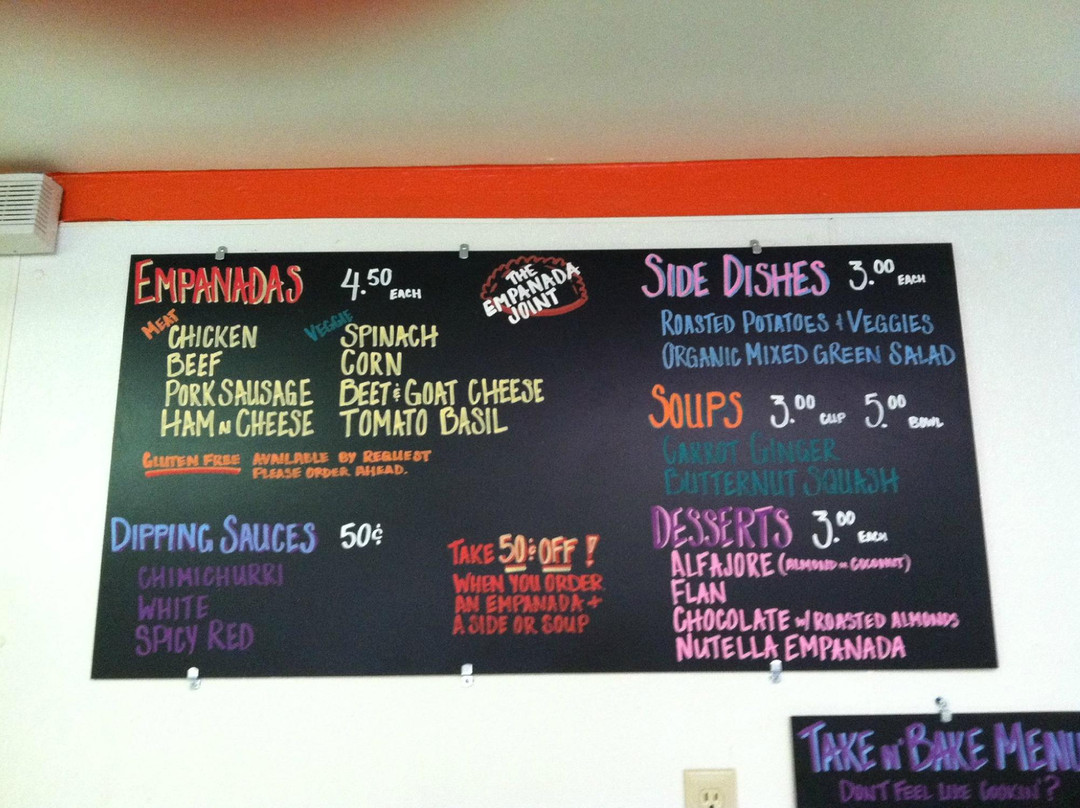 EMPANADAS 4.50 EACH
MEAT
CHICKEN
BEEF
PORK SAUSAGE
HAM N CHEESE
VEGGIE
SPINACH
CORN
BEET & GOAT CHEESE
TOMATO BASIL
GLUTEN FREE AVAILABLE BY REQUEST
PLEASE ORDER AHEAD.
DIPPING SAUCES 50¢
CHIMICHURRI
WHITE
SPICY RED
THE
EMPANADA
JOINT
TAKE 50¢ OFF!
WHEN YOU ORDER
AN EMPANADA +
A SIDE OR SOUP
SIDE DISHES 3.00 EACH
ROASTED POTATOES & VEGGIES
ORGANIC MIXED GREEN SALAD
SOUPS 3.00 CUP 5.00 BOWL
CARROT GINGER
BUTTERNUT SQUASH
DESSERTS 3.00 EACH
ALFAJORE (ALMOND OR COCONUT)
FLAN
CHOCOLATE W/ ROASTED ALMONDS
NUTELLA EMPANADA
TAKE N' BAKE MENU
DON'T FEEL LIKE COOKIN'?